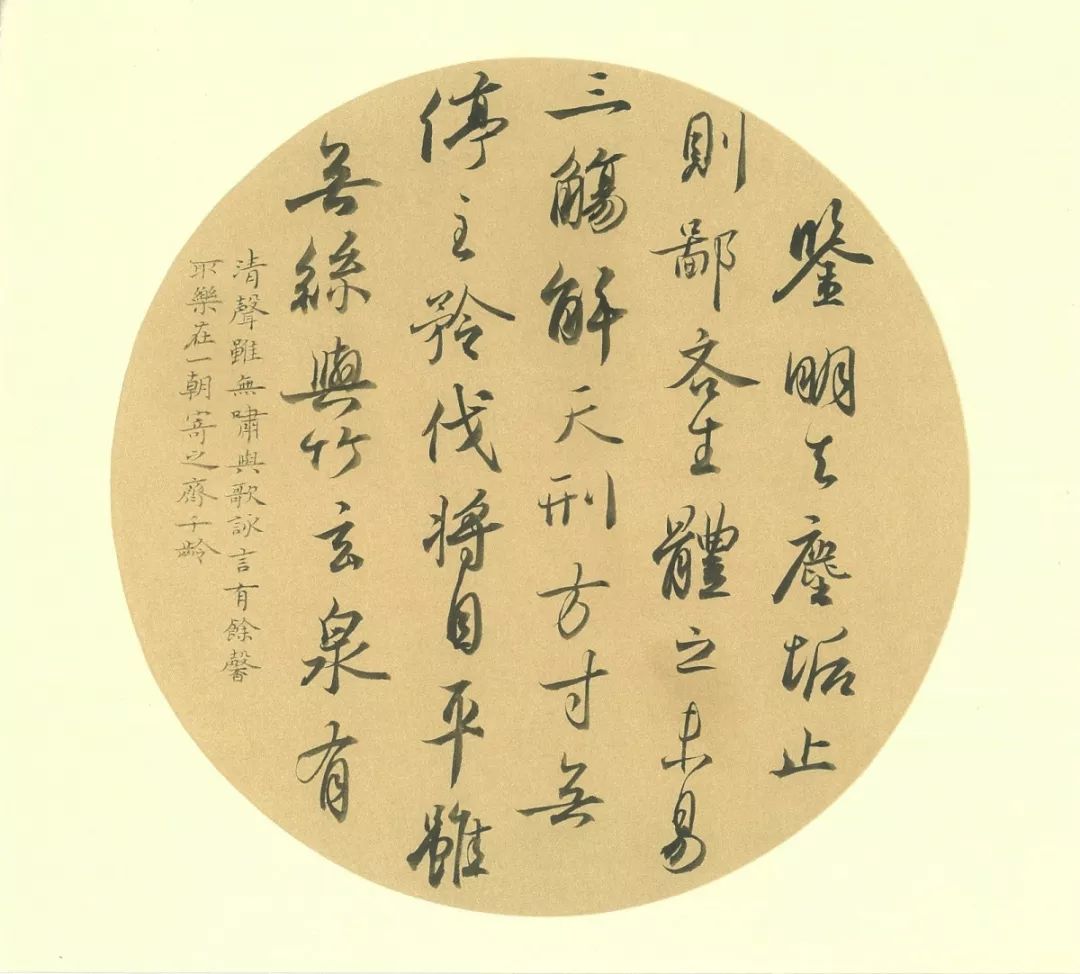 鑒明去塵垢止
則鄙吝生體之未易
三觴解天刑方寸無
停主矜伐將自平雖
無絲與竹玄泉有
清聲雖無嘯與歌詠言有餘馨
取樂在一朝寄之齊千齡